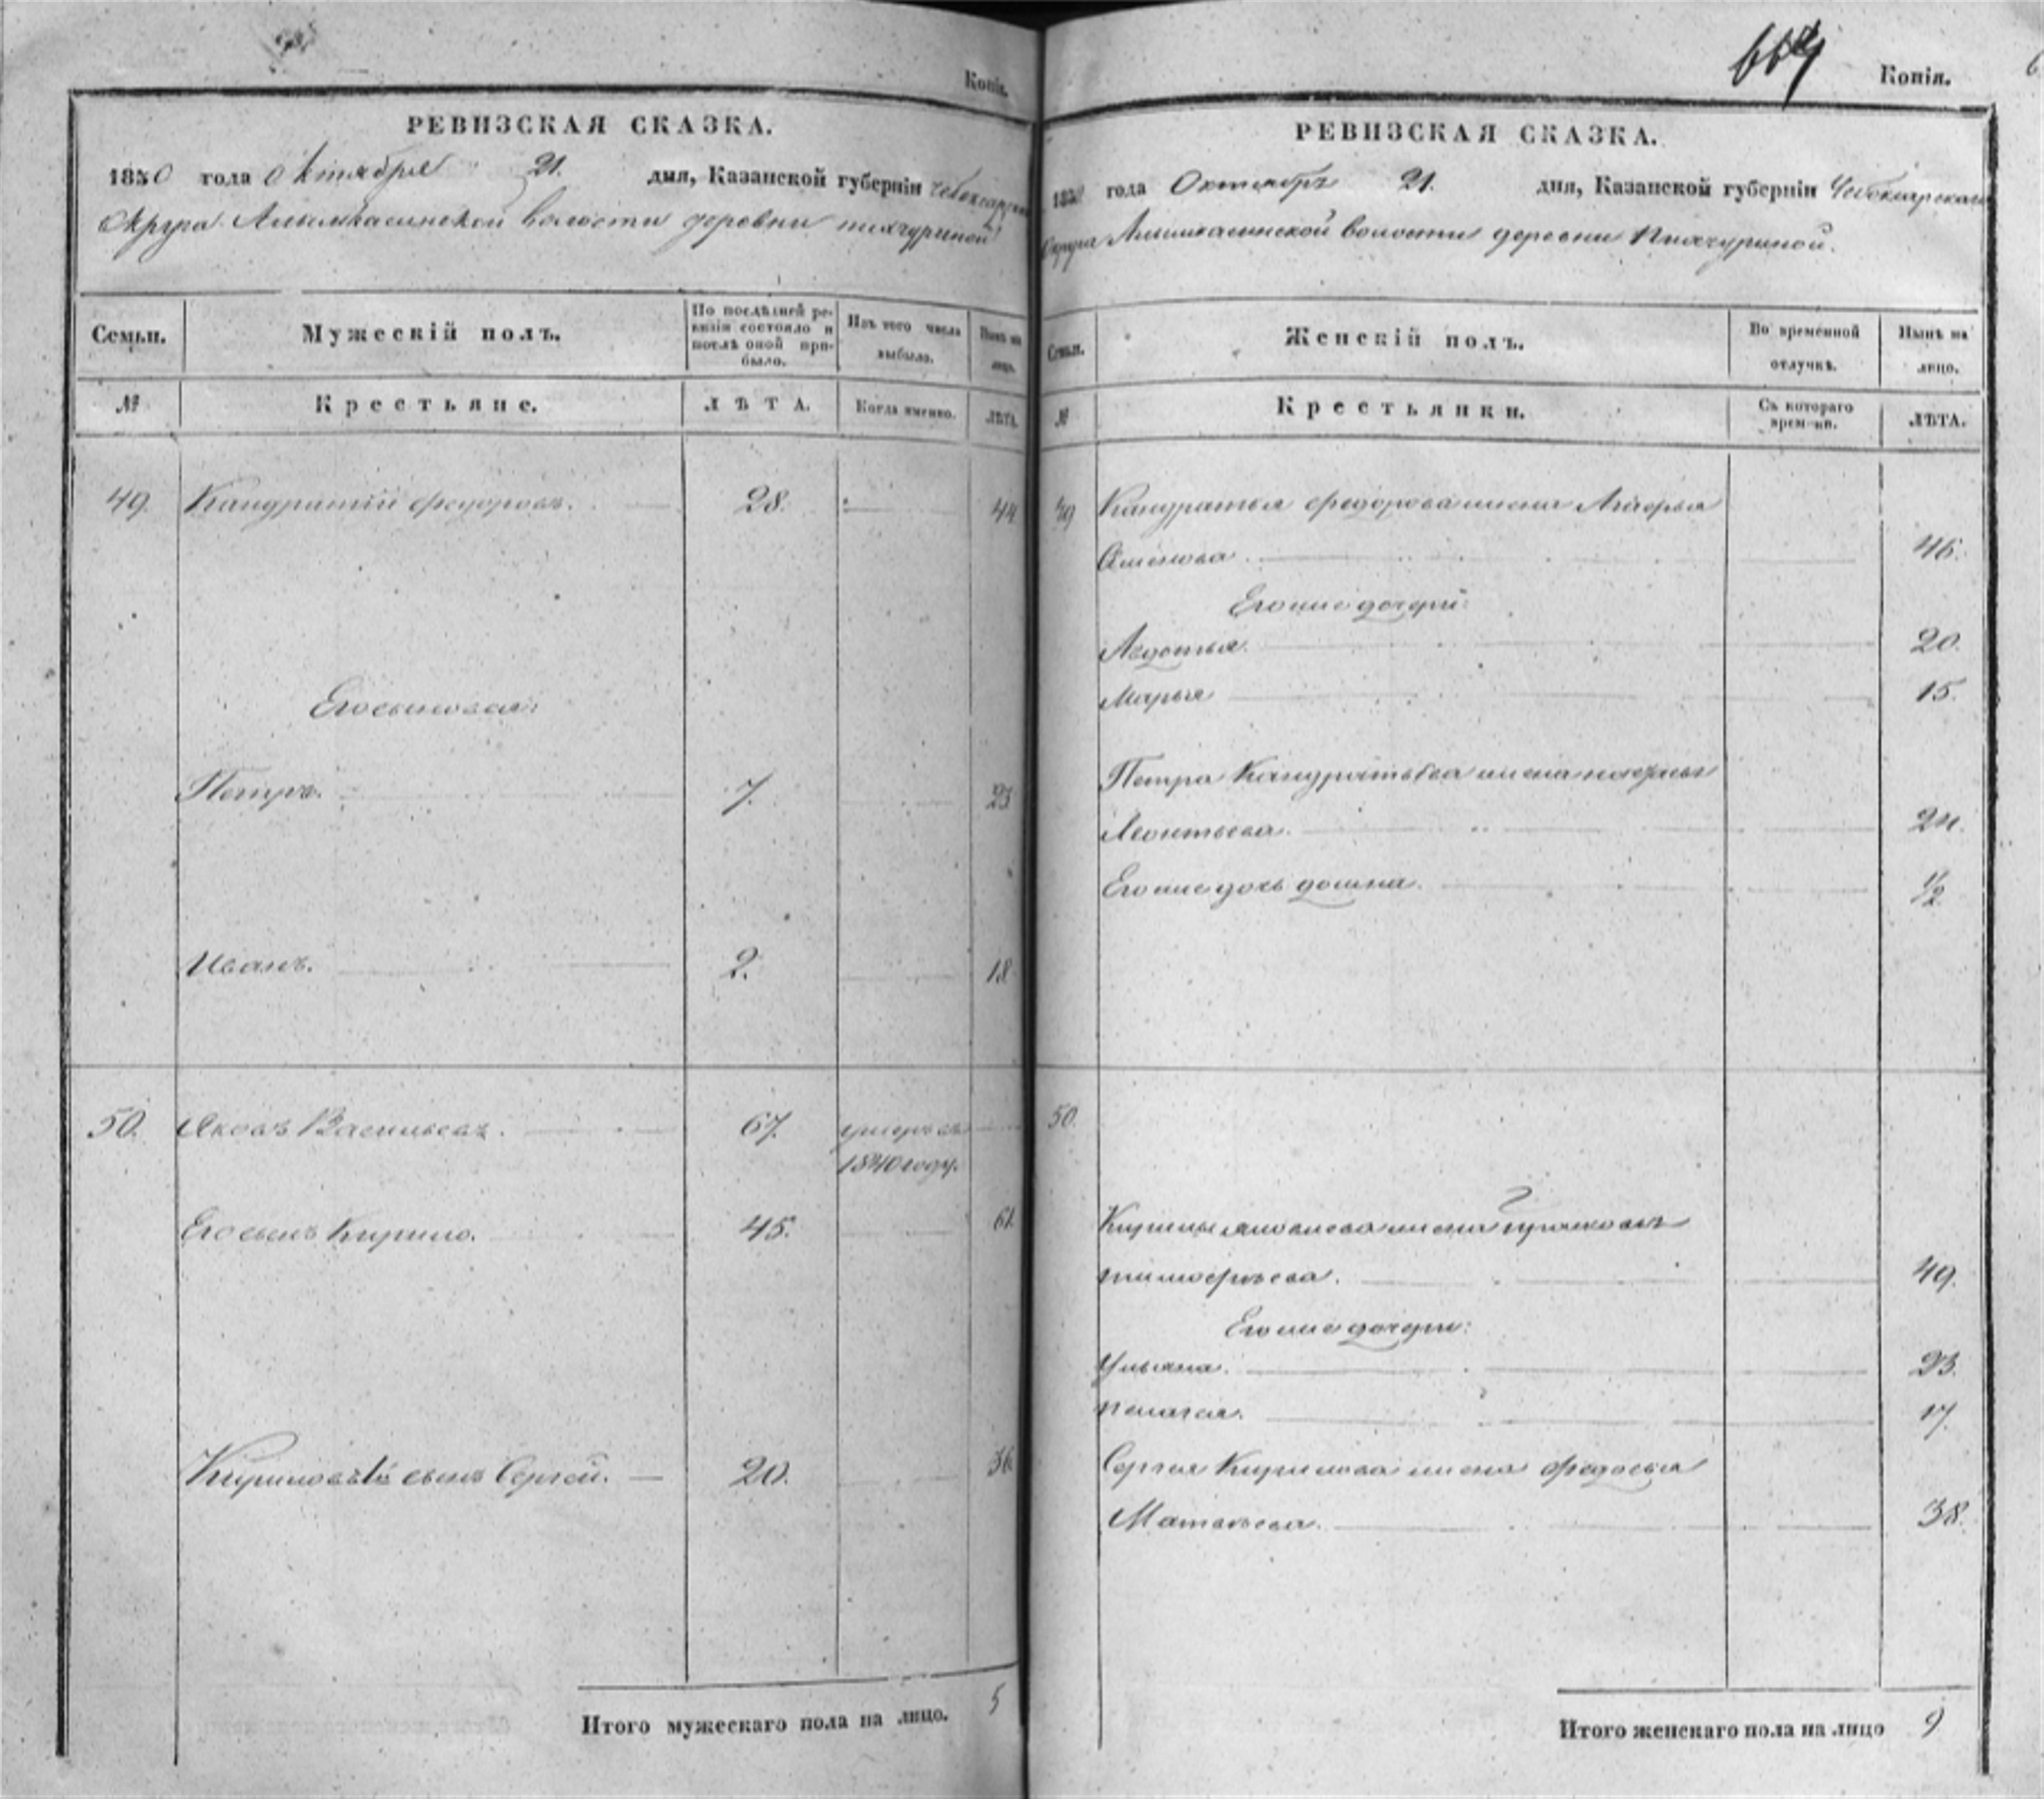 Копія.
РЕВИЗСКАЯ СКАЗКА.
1850 года октября 21. дня, Казанской губерніи Чебоксарскаго
Округа Алымкасинской волости деревни пихчуриной
Семьи.
Мужескій полъ.
По послѣдней ре-
визіи состояло и
послѣ оной при-
было.
Изъ того числа
выбыло.
Нынѣ на
лицо.
№
Крестьяне.
ЛѢТА.
Когда именно.
ЛѢТА.
49. Кандратій федоровъ. 28. 44
Его сыновья:
Петръ. 7. 23
Иванъ. 2. 18
50. Яковъ Васильевъ. 67. умеръ въ
1840 году.
Его сынъ Кирило. 45. 61
Кириловъ сынъ Сергей. 20. 36
Итого мужескаго пола на лицо. 5
664
Копія.
РЕВИЗСКАЯ СКАЗКА.
1850 года Октября 21. дня, Казанской губерніи Чебоксарскаго
Округа Алымкасинской волости деревни Пихчуриной.
Семьи.
Женскій полъ.
Во временной
отлучкѣ.
Нынѣ на
лицо.
№
Крестьянки.
Съ котораго
времени.
ЛѢТА.
49 Кандратья федорова жена
Семенова. 46.
Его же дочери:
Авдотья. 20.
Марья 15.
Петра Кандратьева жена
Леонтьева. 24.
Его же дочь домна. 1/2
50.
Кирилы яковлева жена
тимофеева. 49.
Его же дочери:
Ульяна. 23.
пелагея. 17.
Сергея Кирилова жена федосья
Матвеева. 38.
Итого женскаго пола на лицо 9